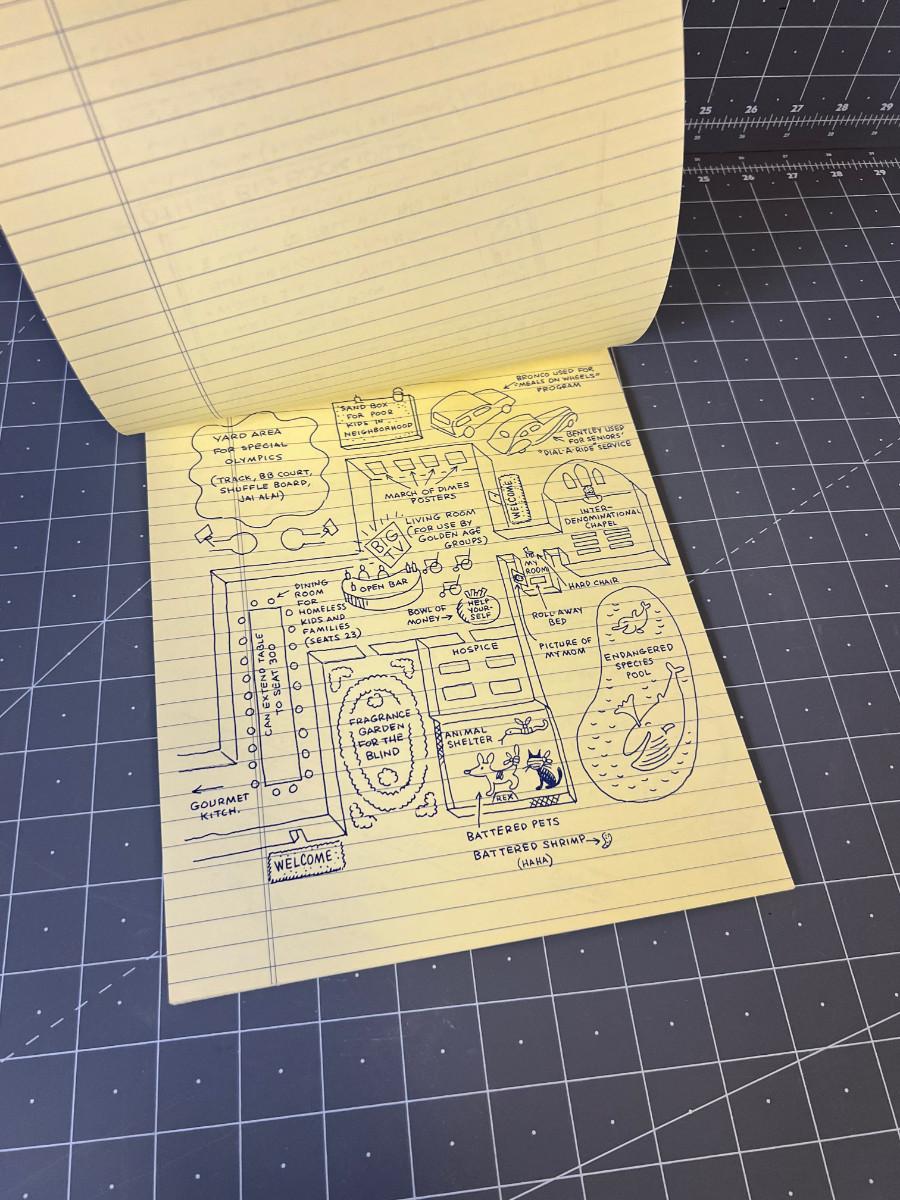 25 26 27 28 29
25 27 28 29
BRONCO USED FOR
"MEALS ON WHEELS"
PROGRAM
SAND BOX
FOR POOR
KIDS IN
NEIGHBORHOOD
YARD AREA
FOR SPECIAL
OLYMPICS
(TRACK, BB COURT,
SHUFFLE BOARD,
JAI ALAI)
BENTLEY USED
FOR SENIORS'
"DIAL-A-RIDE" SERVICE
MARCH OF DIMES
POSTERS
WELCOME
INTER-
DENOMINATIONAL
CHAPEL
LIVING ROOM
(FOR USE BY
GOLDEN AGE
GROUPS)
BIG
TV
OPEN BAR
MY
ROOM
HARD CHAIR
DINING
ROOM
FOR
HOMELESS
KIDS AND
FAMILIES
(SEATS 23)
CAN EXTEND TABLE
TO SEAT 300
BOWL OF
MONEY
HELP
YOUR-
SELF
ROLL AWAY
BED
PICTURE OF
MY MOM
HOSPICE
ENDANGERED
SPECIES
POOL
FRAGRANCE
GARDEN
FOR THE
BLIND
ANIMAL
SHELTER
REX
GOURMET
KITCH.
BATTERED PETS
BATTERED SHRIMP
(HAHA)
WELCOME